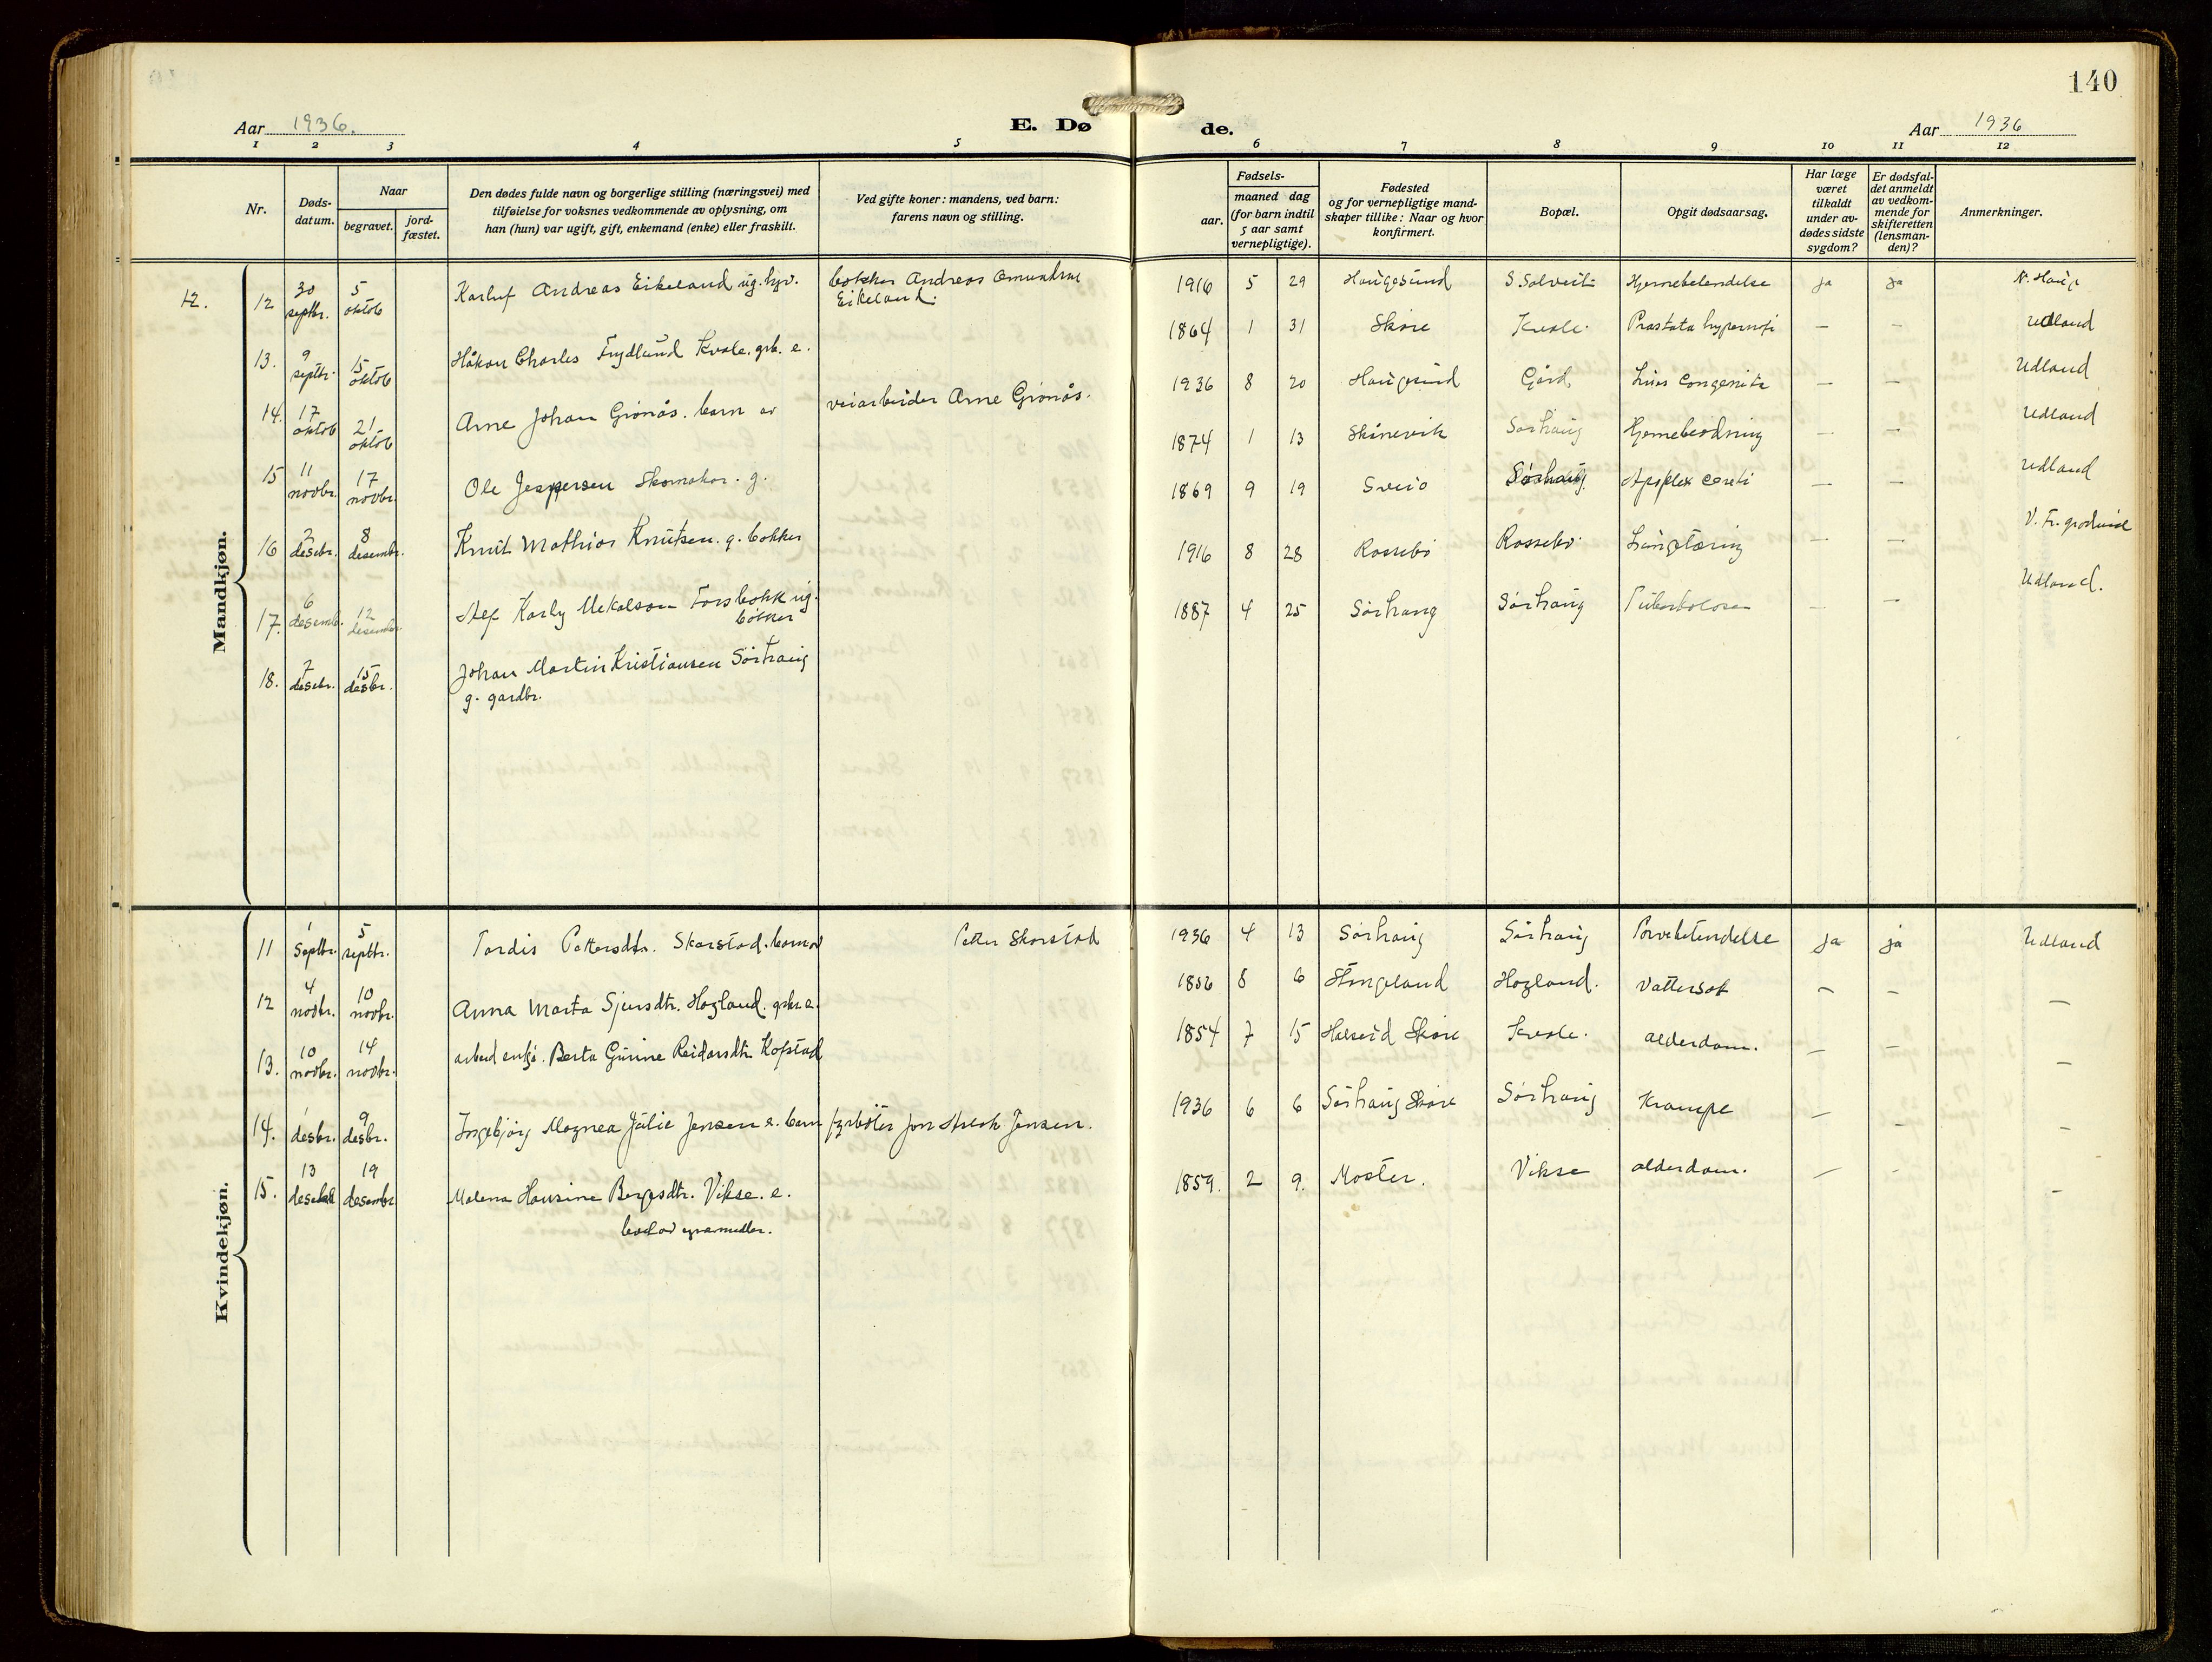 140
Aar 1936.
E. Dø de.
Aar 1936
1 2 3 4 5 6 7 8 9 10 11 12
Nr.
Døds-
datum.
Naar
begravet.
jord-
fæstet.
Den dødes fulde navn og borgerlige stilling (næringsvei) med
tilføielse for voksnes vedkommende av oplysning, om
han (hun) var ugift, gift, enkemand (enke) eller fraskilt.
Ved gifte koner: mandens, ved barn:
farens navn og stilling.
Fødsels-
aar.
maaned dag
(for barn indtil
5 aar samt
vernepligtige).
Fødested
og for vernepligtige mand-
skaper tillike: Naar og hvor
konfirmert.
Bopæl.
Opgit dødsaarsag.
Har læge
været
tilkaldt
under av-
dødes sidste
sygdom?
Er dødsfal-
det anmeldt
av vedkom-
mende for
skifteretten
(lensman-
den)?
Anmerkninger.
Mandkjøn.
12. 12 30 septbr. 5 oktob Karluf Andreas Eikeland ug. bokker Andreas Omundsen 1916 5 29 Haugesund Hjernebetendelse ja ja N. Haug
Eikeland.
13. 9 septbr. 15 oktob Håkon Charles Frydlund Kvale. e. 1864 1 31 Skåre Kvale. Prostata — — Udland
14. 17 oktob 21 oktob Arne Johan Grönås. barn av veiarbeider Arne Grönås. 1936 8 20 Haugesund Gård Lues Congenita — — Udland
15 11 novbr. 17 novbr. Ole Jespersen Skomaker. g. 1874 1 13 Skånevik Sörhaug Hjerneblödning — — Udland
16 2 desbr. 8 desembr. Knut Mathias Knutsen. g. bokker 1869 9 19 Sveio Sörhaug Apoplex — — Udland
17. 6 desemb. 12 desembr Alf Karly Mekalson ug. 1916 8 28 Rossebö Rossebö Lungetæring — — V. Fr.
bokker
18. 7 desbr. 15 desbr. Johan Martin Kristiansen Sörhaug 1887 4 25 Sörhaug Sörhaug Tuberkolose — — Udland.
g. gardbr.
Kvindekjøn.
11 1 Septbr. 5 septbr. Tordis Pettersdtr. Skarstad. barn av Petter Skarstad 1936 4 13 Sörhaug Sörhaug ja ja Udland
12 4 novbr. 10 novbr. Anna Marta Sjursdtr. Hagland. e. 1856 8 6 Stangeland Hagland. Vattersot — — —
13. 10 novbr. 14 novbr. arbeid enke. Berta Gurine Reidarsdtr. Kofstad 1854 7 15 Skåre Kvale. alderdom. — — —
14. 1 desbr. 9 desbr. Ingebjörg Magnea Julie Jensen e. barn fyrböter Jensen. 1936 6 6 Sörhaug Skåre Sörhaug Krampe — — —
15. 13 19 desembr Malena Hansine Bergsdtr. Vikse. e. 1859. 2 9. Moster. Vikse alderdom. — — —